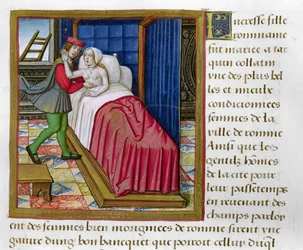 Lucresse fille
rommaine
fut mariee a tar
quin collatin
vne des plus bel
les et mieulx
condicionnees
femmes de la
ville de romme
Ainsi que les
gentilz hõmes
de la cite pour
leur passetemps
en retenant des
champs parloy
ent des femmes bien morigines de romme firent vne
gaiure dung bon bancquet que pour